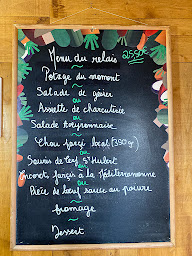 Menu du relais 25,50€
Potage du moment
~
Salade de gésier
ou
Assiette de charcuterie
ou
Salade Aveyronnaise
~
Chou farçi local (350gr)
ou
Souris de cerf St Hubert
ou
Encornet farçis à la Méditerranéenne
ou
Pièce de bœuf sauce au poivre
~
fromage
~
Dessert